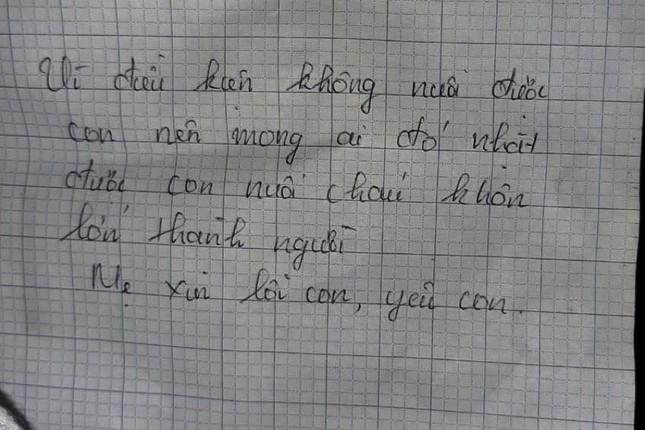 Vì điều kiện không nuôi được
con nên mong ai đó nhặt
được con nuôi cháu khôn
lớn thành người
Mẹ xin lỗi con, yêu con.